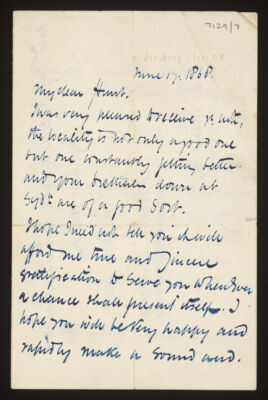 7129/7
June 17. 1868.
My dear Hunt.
I was very pleased to receive yr note,
the locality is not only a good one
but one constantly getting better.
and your brethren down at
are of a good sort.
I hope I need not tell you it will
afford me true and sincere
gratification to serve you whenever
a chance shall present itself. I
hope you will be very happy and
rapidly make a sound and.